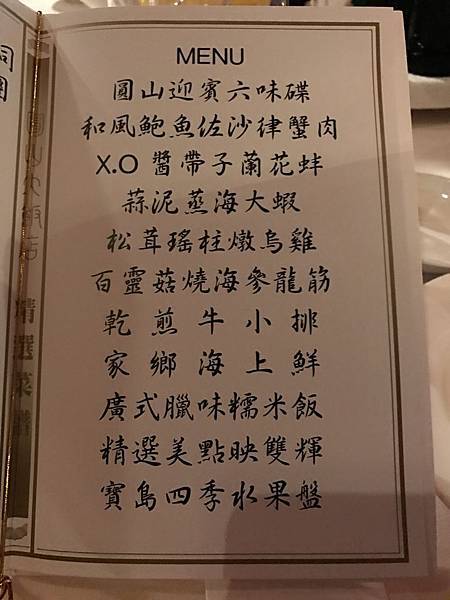 MENU
圓山迎賓六味碟
和風鮑魚佐沙律蟹肉
X.O 醬帶子蘭花蚌
蒜泥蒸海大蝦
松茸瑤柱燉烏雞
百靈菇燒海參龍筋
乾煎牛小排
家鄉海上鮮
廣式臘味糯米飯
精選美點映雙輝
寶島四季水果盤
精選菜譜